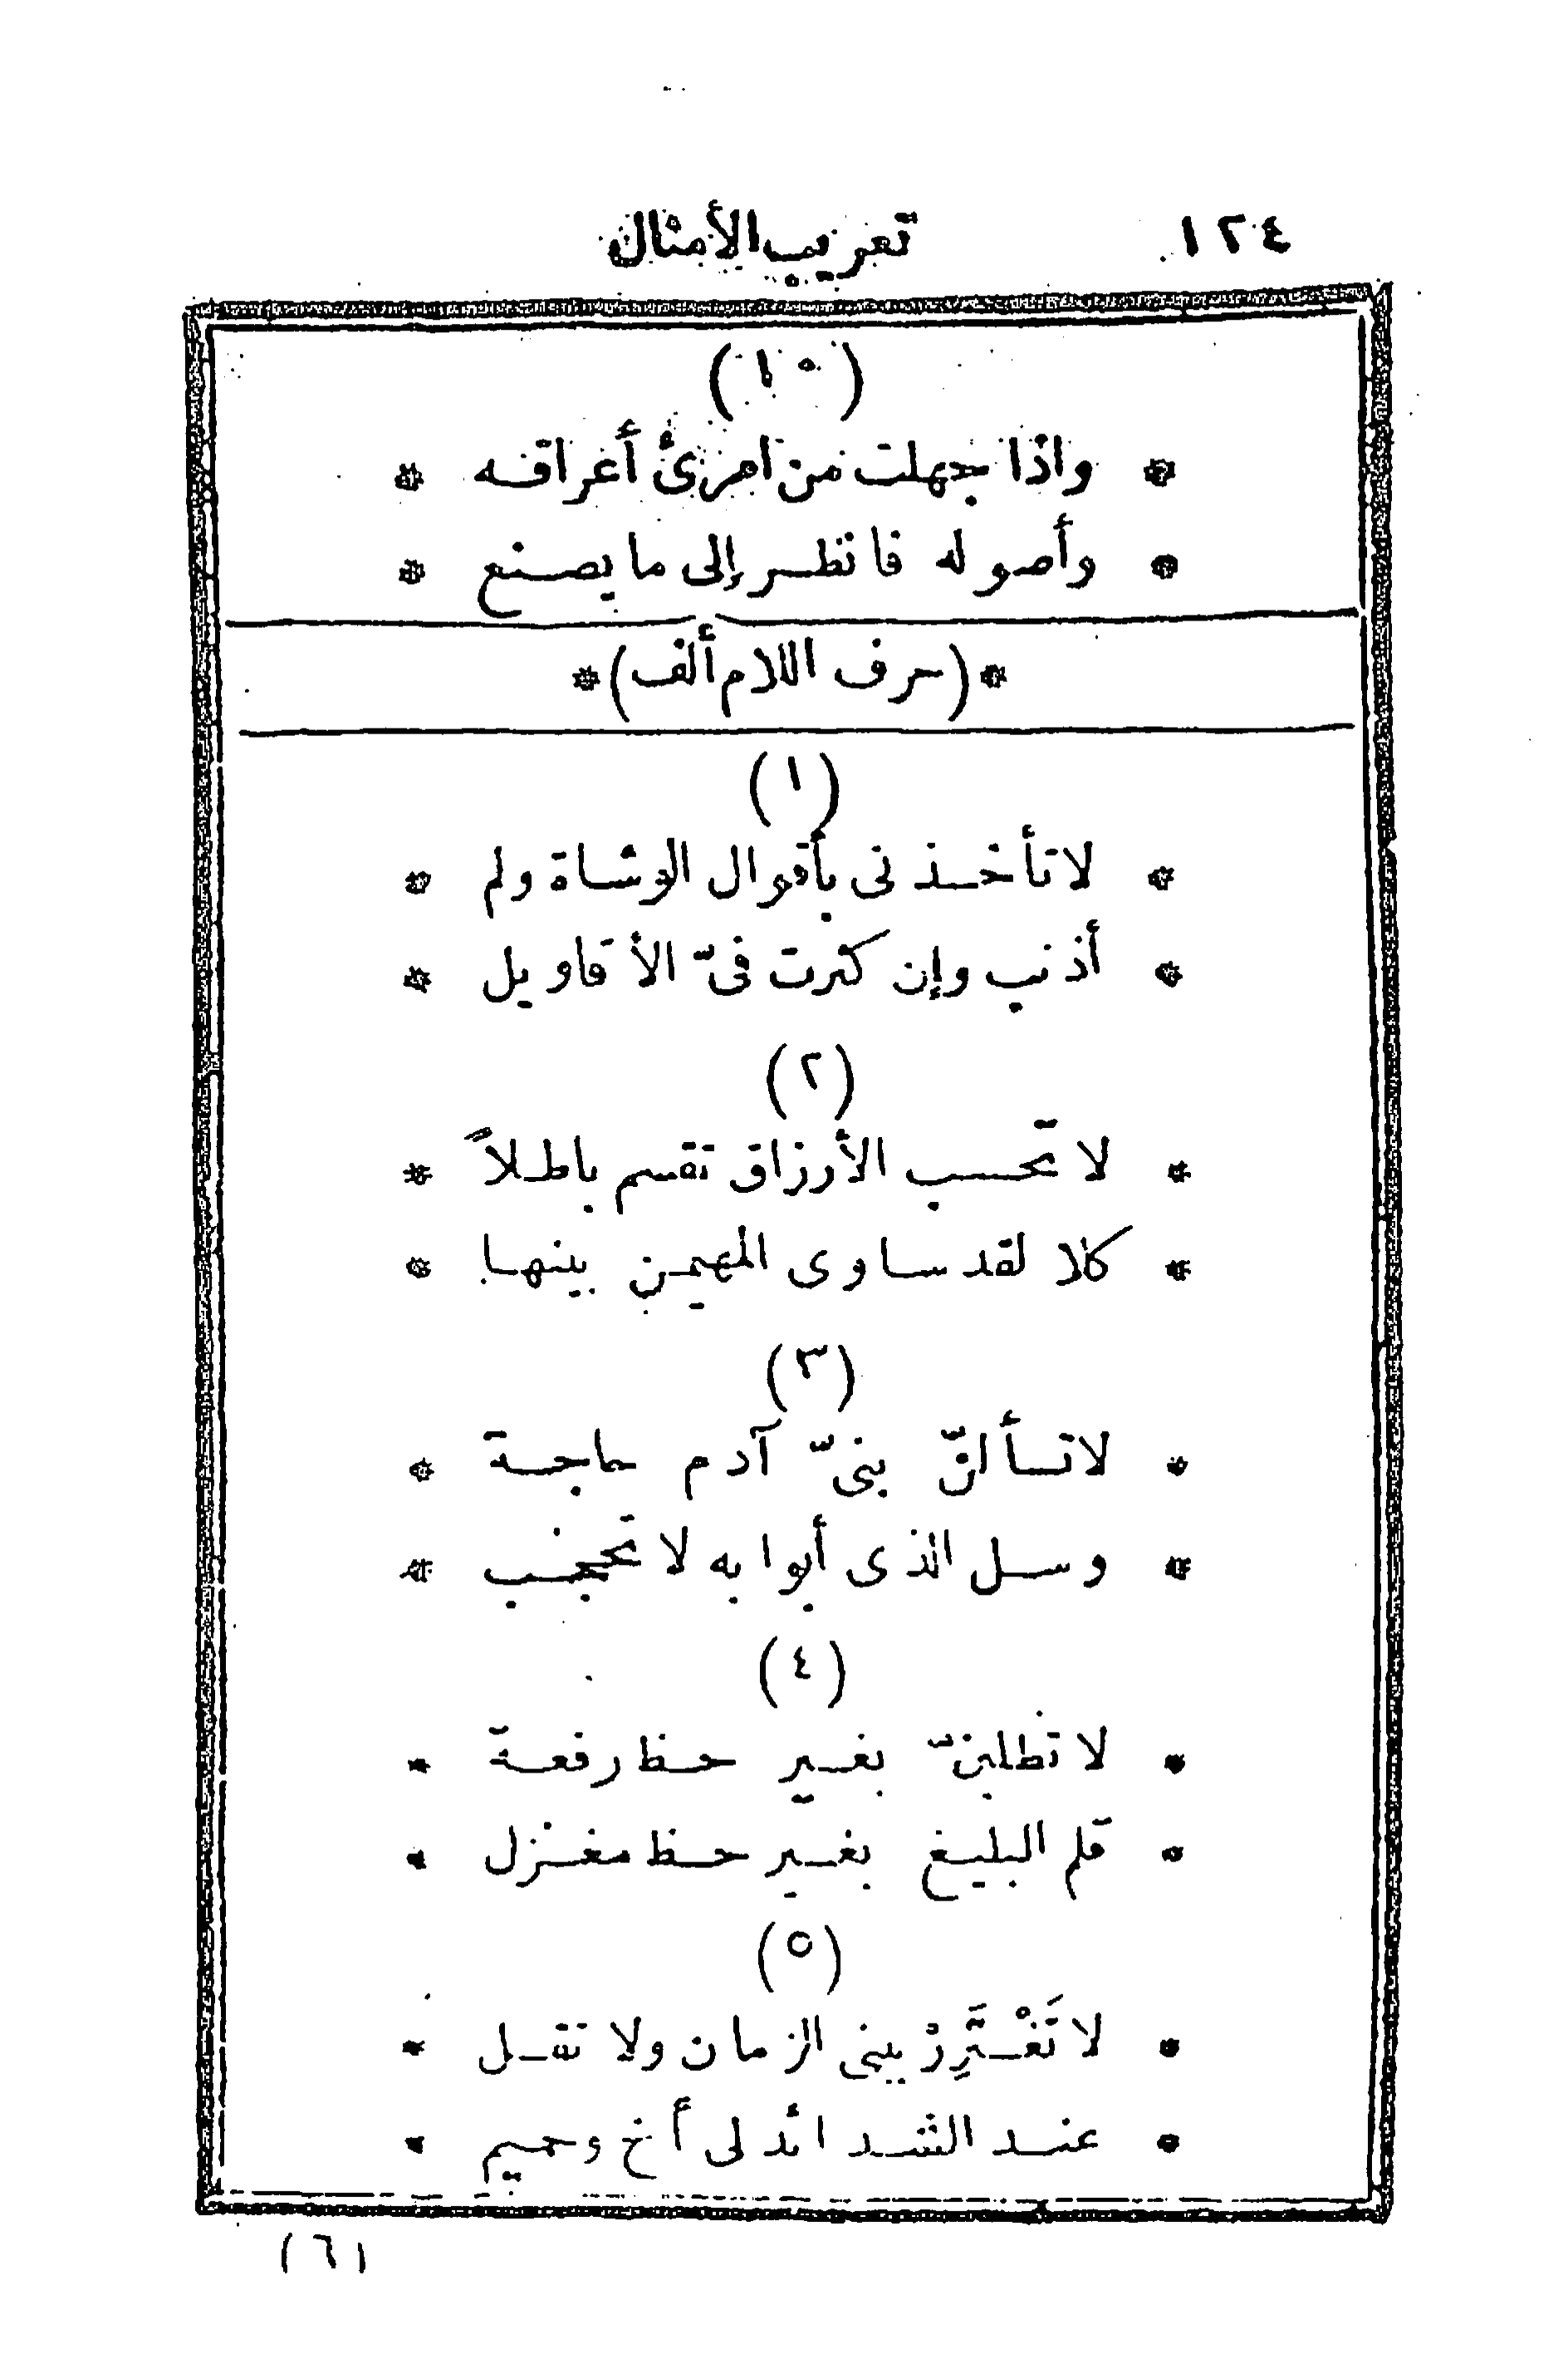 ١٢٤ تعريب الأمثال
(١٥)
* واذا جهلت من امرئ أعراقه *
* وأصوله فانظر إلى ما يصنع *
*(حرف اللام ألف)*
(١)
* لا تأخذنى بأقوال الوشاة ولم *
* أذنب وإن كثرت فىّ الأقاويل *
(٢)
* لا تحسب الأرزاق تقسم باطلاً *
* كلا لقد ساوى المهيمن بينها *
(٣)
* لا تسألنّ بنىّ آدم حاجة *
* وسل الذى أبوابه لا تحجب *
(٤)
* لا تطلبنّ بغير حظ رفعة *
* قلم البليغ بغير حظ مغزل *
(٥)
* لا تَغْتَرِرْ ببنى الزمان ولا تقل *
* عند الشدائد لى أخ وحميم *
(٦)